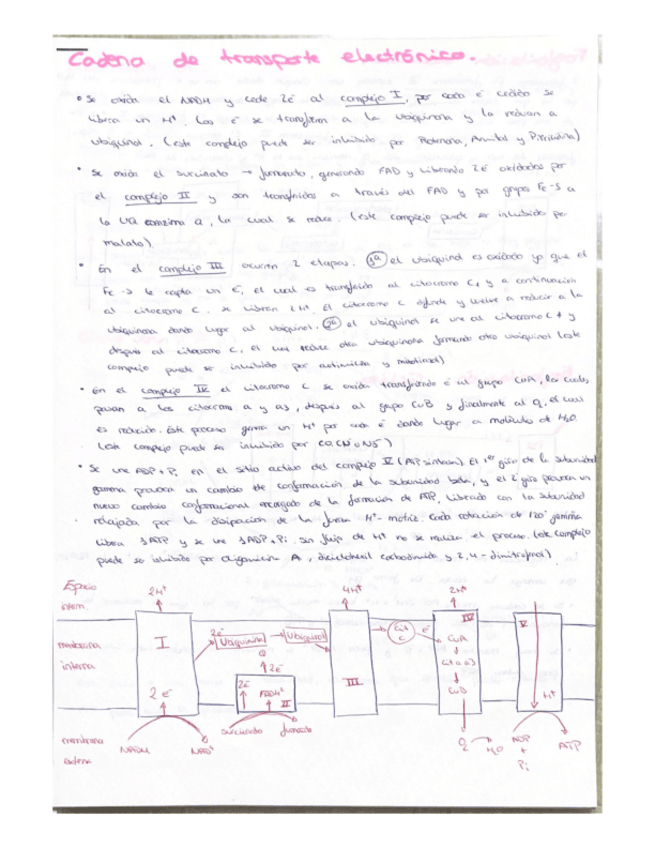 Cadena de transporte electrónico.
• Se oxida el NADH y cede 2e⁻ al complejo I, por cada e⁻ cedido se
libera un H⁺. Los e⁻ se transfieren a la ubiquinona y la reducen a
ubiquinol. (este complejo puede ser inhibido por Rotenona, Amital y
• Se oxida el succinato → fumarato, generando FAD y liberando 2e⁻ oxidados por
el complejo II y son transferidos a través del FAD y por grupos Fe-S a
la UQ coenzima Q, la cual se reduce. (este complejo puede ser inhibido por
malato).
• En el complejo III ocurren 2 etapas. 1ª el ubiquinol es oxidado ya que el
Fe-S le capta un e⁻, el cual es transferido al citocromo C1 y a continuación
al citocromo C. se liberan 2H⁺. El citocromo C difunde y vuelve a reducir a la
ubiquinona dando lugar al ubiquinol. 2ª el ubiquinol se une al citocromo C1 y
después al citocromo C, el cual reduce otra ubiquinona formando otro ubiquinol (este
complejo puede ser inhibido por antimicina y
• En el complejo IV el citocromo C se oxida transfiriendo e⁻ al grupo CuA, los cuales
pasan a los citocromo a y a3, después al grupo CuB y finalmente al O₂, el cual
es reducido. Este proceso genera un H⁺ por cada e⁻ dando lugar a moléculas de H₂O.
(este complejo puede ser inhibido por CO, CN⁻ o N3⁻)
• Se une ADP + Pi en el sitio activo del complejo V (ATP sintasa). El 1er giro de la subunidad
gamma provoca un cambio de conformación de la subunidad beta, y el 2º giro provoca un
nuevo cambio conformacional encargado de la formación de ATP, liberado con la subunidad
relajada por la disipación de la fuerza H⁺-motriz. Cada rotación de 120° gamma
libera 3ATP y se une 3ADP + Pi. sin flujo de H⁺ no se realiza el proceso. (este complejo
puede ser inhibido por oligomicina A, diciclohexil carbodiimida y 2,4-dinitrofenol)
Espacio
interm.
2H⁺ 4H⁺ 2H⁺
membrana
interna
I 2e⁻ Ubiquinona → Ubiquinol III Cit C e⁻ IV V
CuA
Q 2e⁻
Cit a a3
2e⁻ FADH² II
CuB
2e⁻ H⁺
succinato fumarato
membrana
externa
NADH NAD⁺ O₂ H₂O ADP + Pi ATP